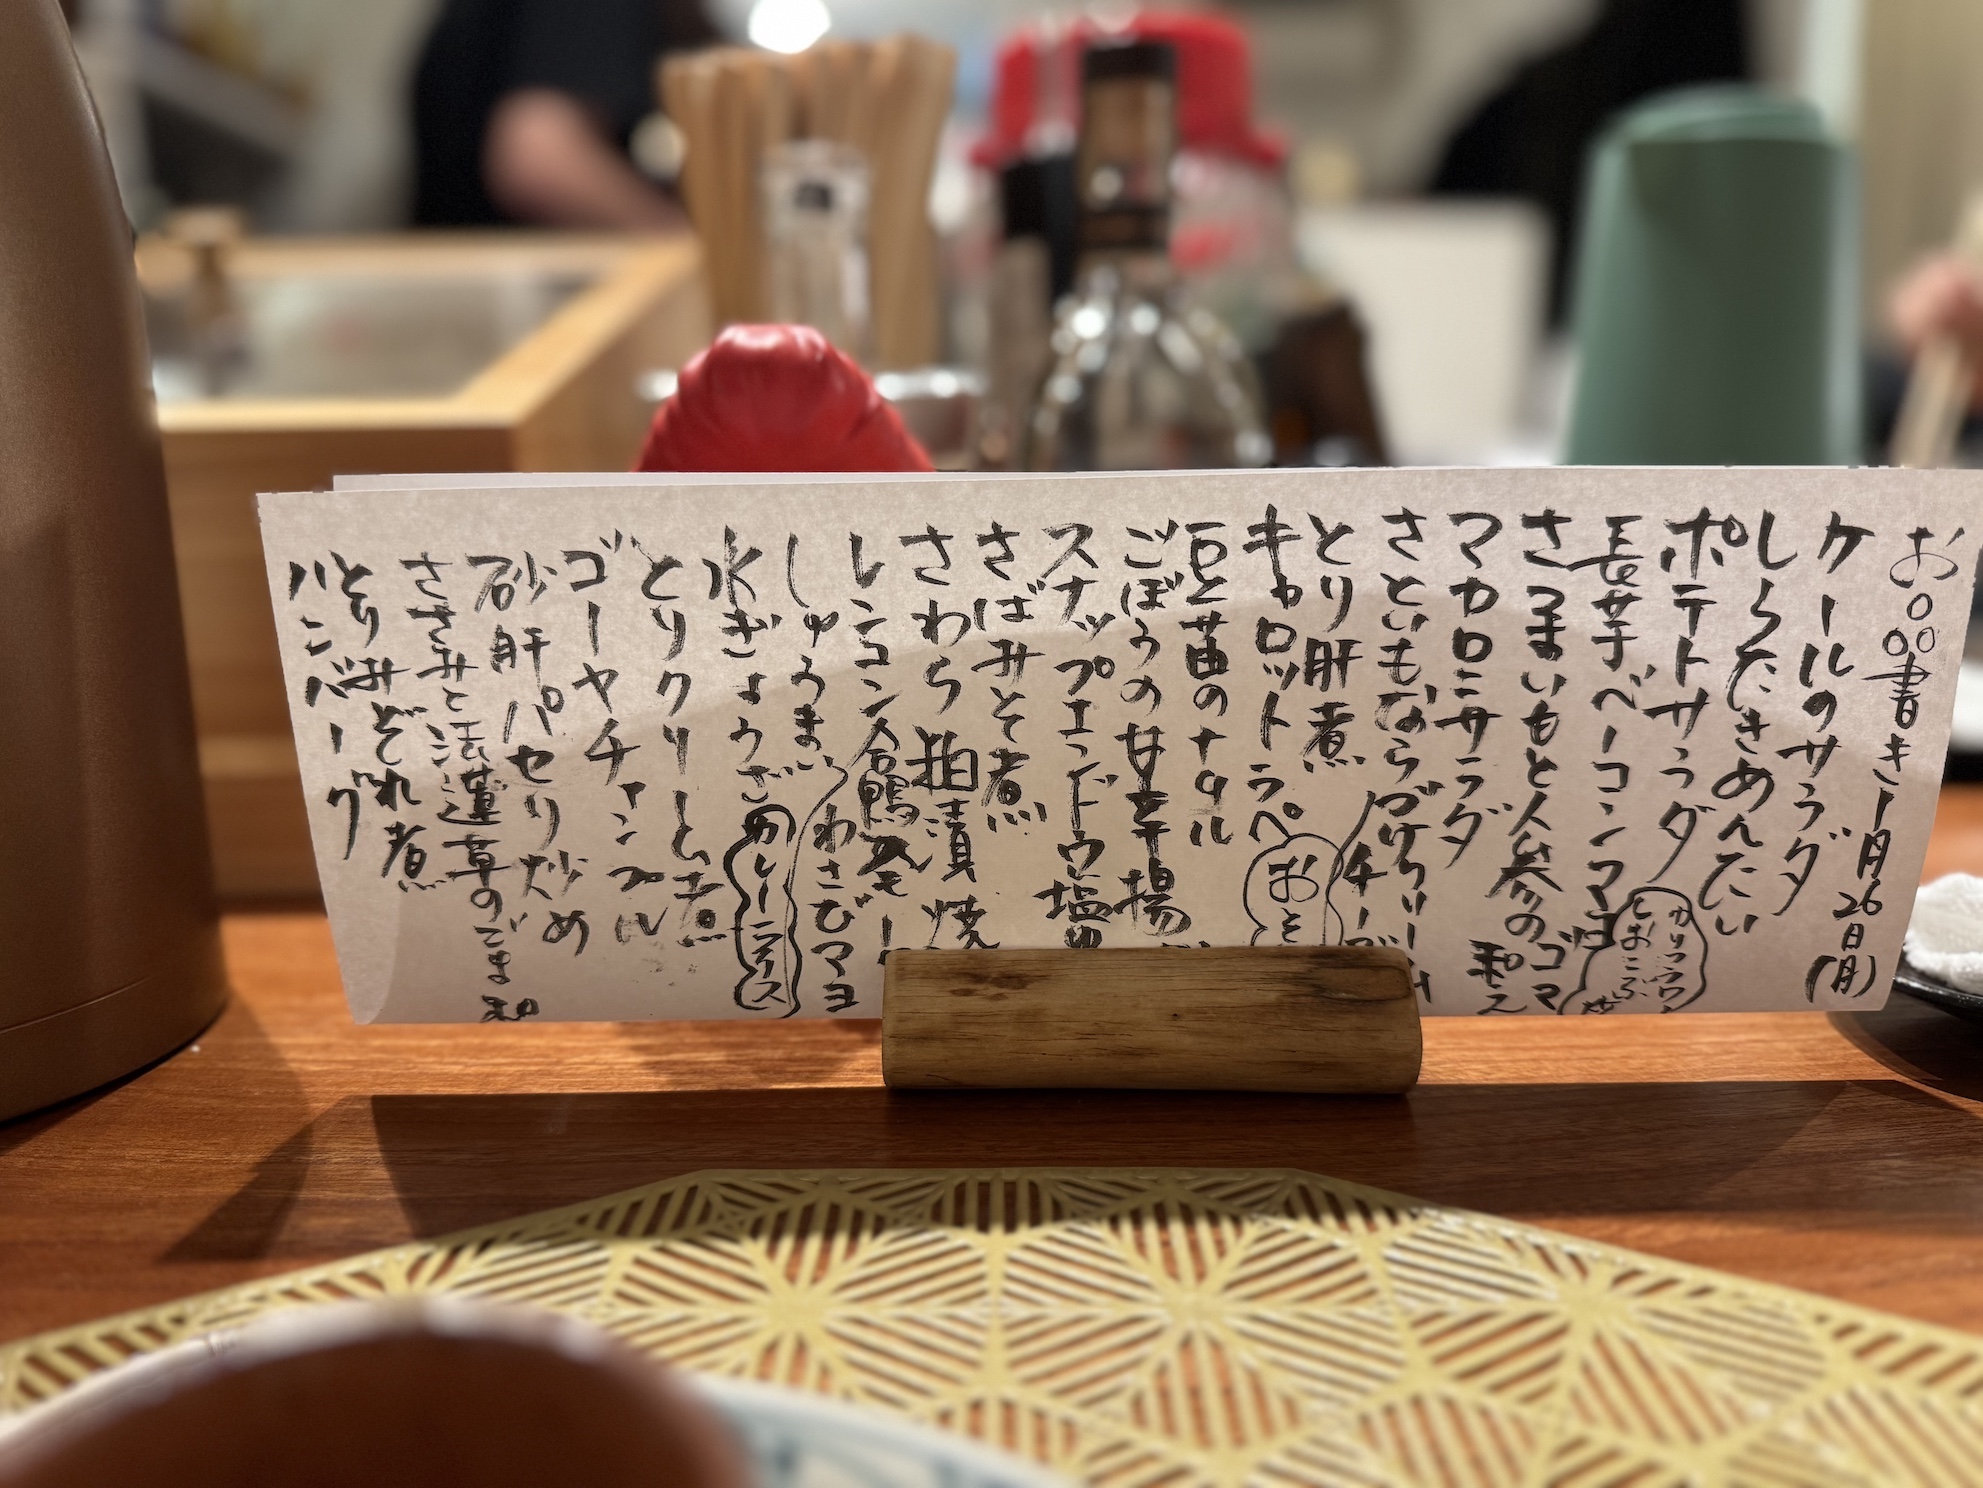 お品書き 1月26日(月)
ケールのサラダ
しらたきめんたい
ポテトサラダ
カリフラワー しおこぶ
長芋ベーコンマヨ
さつまいもと人参のゴマ
マカロニサラダ
さといもならづけ
チーズ
とり肝煮
キャロットラペ
豆苗のナムル
ごぼうの甘辛揚
スナップエンドウ塩
さばみそ煮
さわら粕漬焼
レンコン合鴨
しゅうまい
わさびマヨ
水ぎょうざ
カレーライス
とりクリーム煮
ゴーヤチャンプル
砂肝パセリ炒め
ささみと法蓮草のごま和
とりみぞれ煮
ハンバーグ